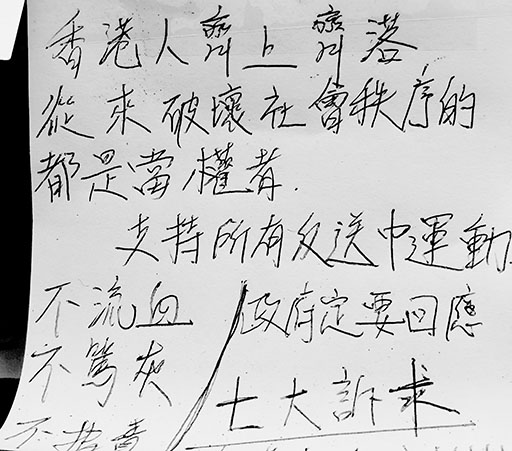 香港人齊上齊落
從來破壞社會秩序的
都是當權者.
支持所有反送中運動.
不流血
不篤灰
不
政府定要回應
七大訴求